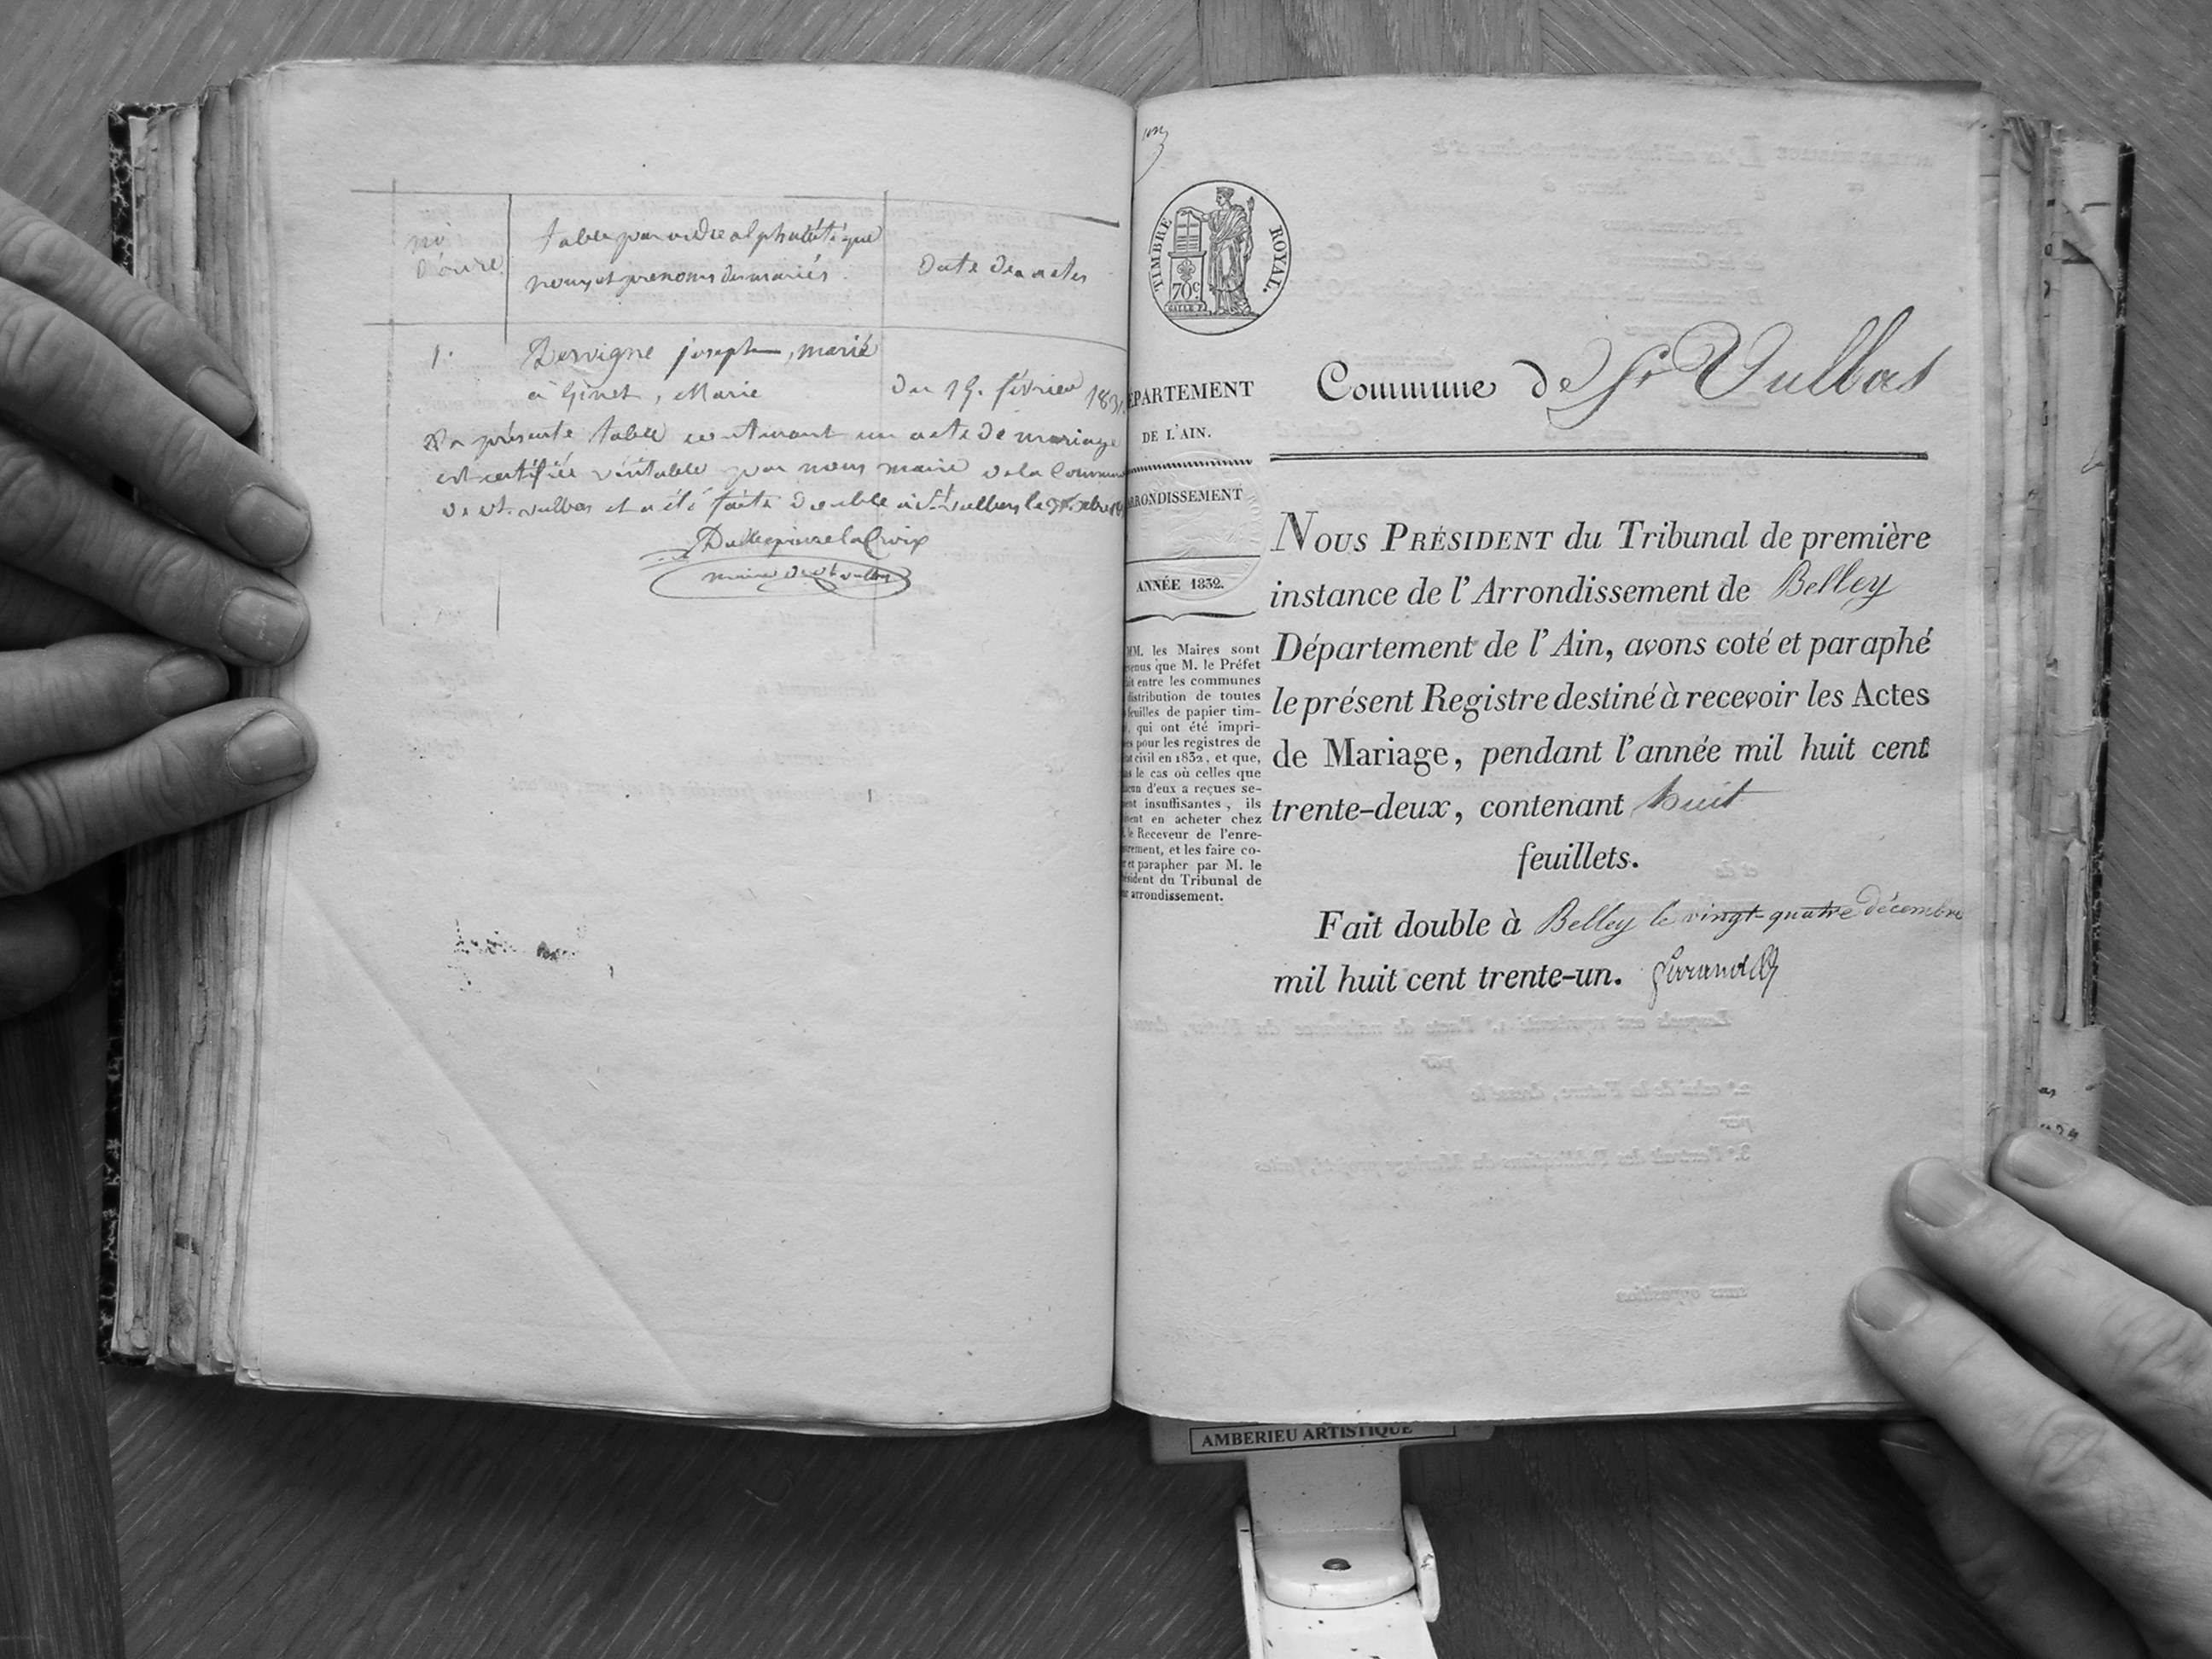 no
d'ordre
table par ordre alphabétique
noms et prenoms des mariés.
Date des actes
1.
Dervigne joseph, marié
à Ginet, Marie
du 15. février 1831
La présente table contenant un acte de mariage
est certifiée véritable par nous maire de la Commune
de st. vulbas et a été faite double à St vulbas le 31. xbre
maire de st vulbas
un
TIMBRE ROYAL.
70c
DÉPARTEMENT
DE L'AIN.
ARRONDISSEMENT
ANNÉE 1832.
MM. les Maires sont
que M. le Préfet
entre les communes
distribution de toutes
feuilles de papier tim-
qui ont été impri-
pour les registres de
civil en 1832, et que,
le cas où celles que
d'eux a reçues se-
insuffisantes, ils
en acheter chez
le Receveur de l'enre-
et les faire co-
et parapher par M. le
du Tribunal de
arrondissement.
Commune de St Vulbas
NOUS PRÉSIDENT du Tribunal de première
instance de l'Arrondissement de Belley
Département de l'Ain, avons coté et paraphé
le présent Registre destiné à recevoir les Actes
de Mariage, pendant l'année mil huit cent
trente-deux, contenant huit
feuillets.
Fait double à Belley le vingt-quatre décembre
mil huit cent trente-un.
AMBERIEU ARTISTIQUE